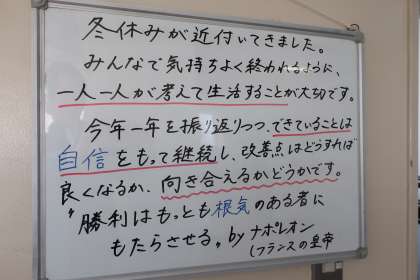 冬休みが近付いてきました。
みんなで気持ちよく終われるように、
一人一人が考えて生活することが大切です。
今年一年を振り返りつつ、できていることは
自信をもって継続し、改善点はどうすれば
良くなるか、向き合えるかどうかです。
〝勝利はもっとも根気のある者に
もたらさせる〟by ナポレオン
(フランスの皇帝